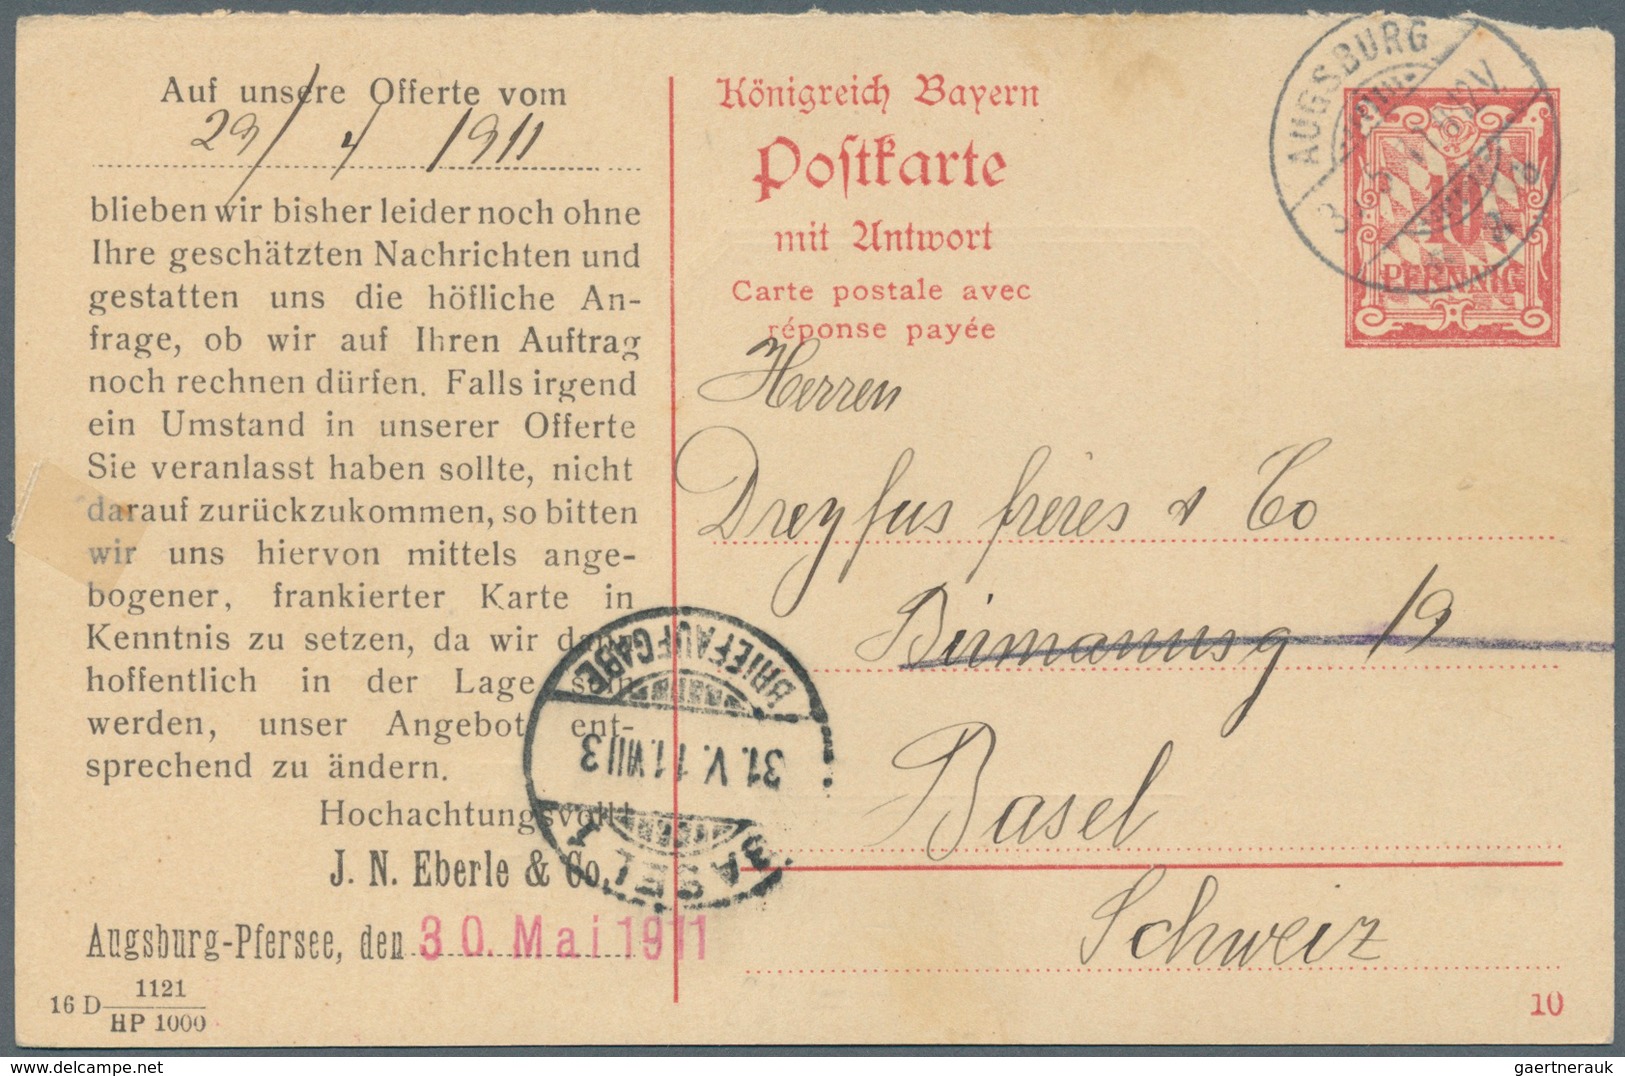 Auf unsere Offerte vom
29/4 1911
blieben wir bisher leider noch ohne
Ihre geschätzten Nachrichten und
gestatten uns die höfliche An-
frage, ob wir auf Ihren Auftrag
noch rechnen dürfen. Falls irgend
ein Umstand in unserer Offerte
Sie veranlasst haben sollte, nicht
darauf zurückzukommen, so bitten
wir uns hiervon mittels ange-
bogener, frankierter Karte in
Kenntnis zu setzen, da wir dann
hoffentlich in der Lage sein
werden, unser Angebot ent-
sprechend zu ändern.
Hochachtungsvoll!
J. N. Eberle & Co.
Augsburg-Pfersee, den 30. Mai 1911
16 D 1121
HP 1000
Königreich Bayern
Postkarte
mit Antwort
Carte postale avec
réponse payée
Herren
Dreyfus frères & Co
19
Basel
Schweiz
10
AUGSBURG
10
PFENNIG
BRIEFAUFGABE
31. V. 11. VIII 3
BASEL 1
delcampe.net
gaertnerauk